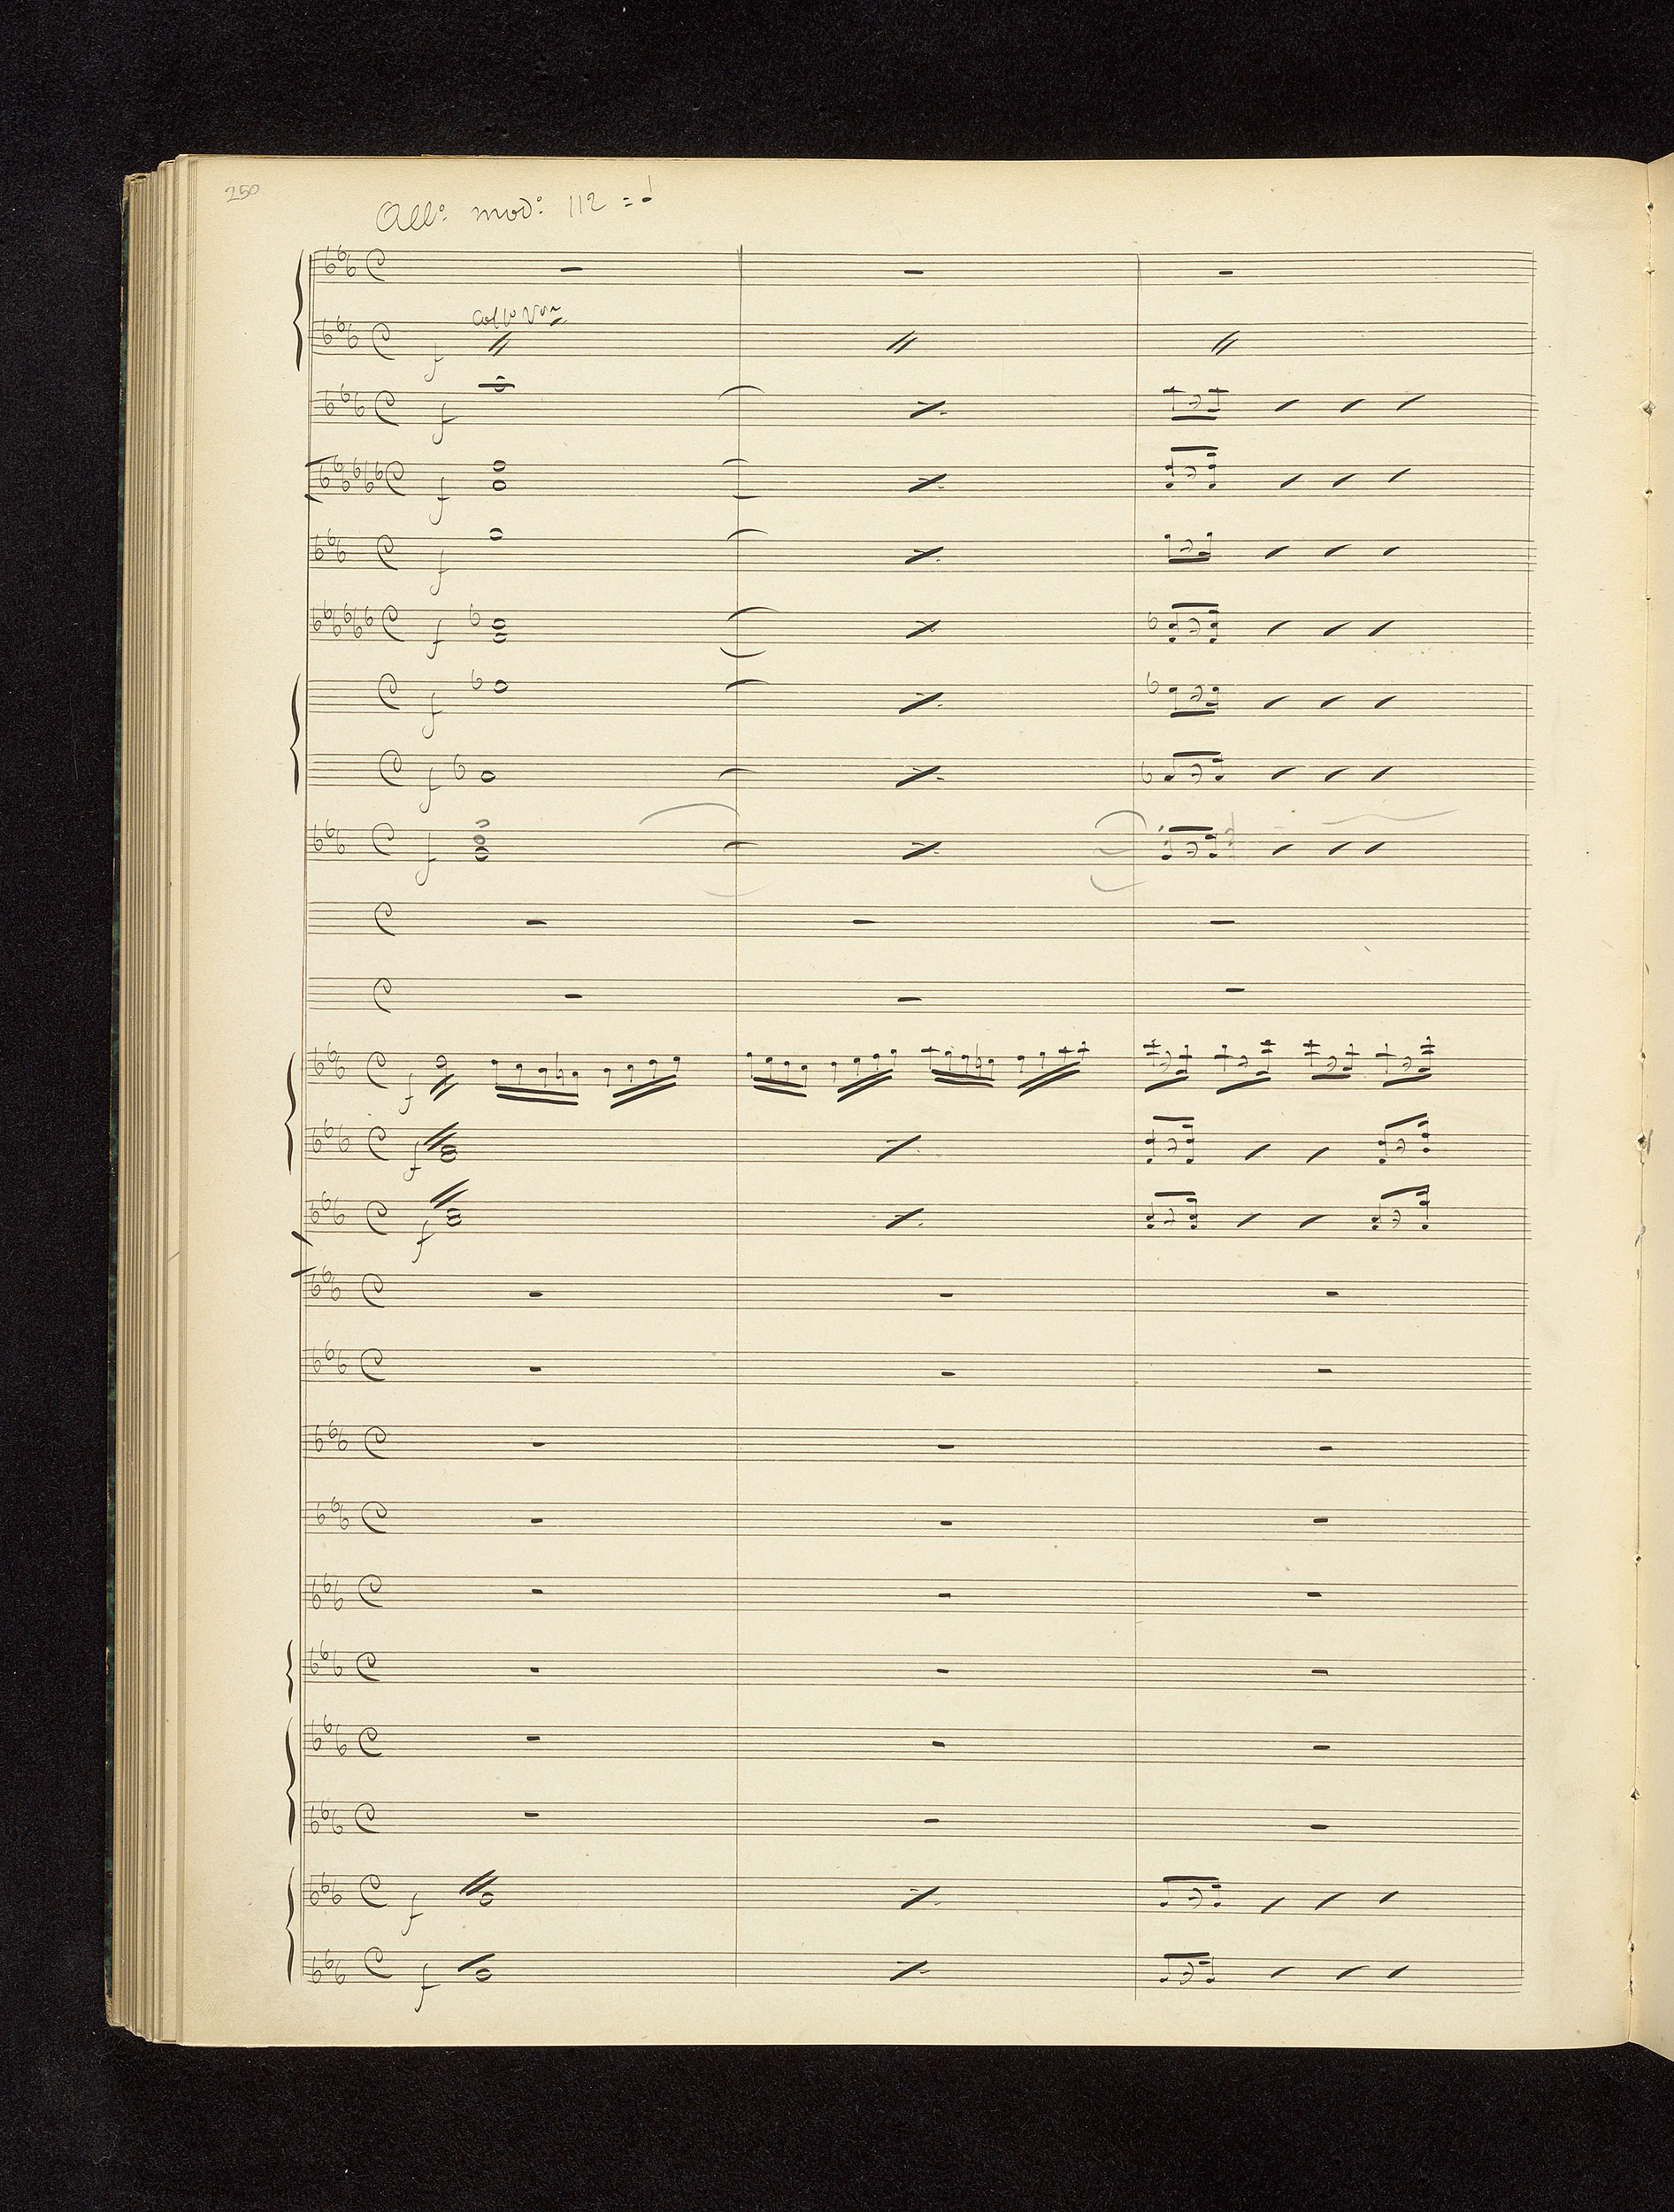 250
All.º mod.º 112 = ♩
Col 1º Vno
f
f
f
f
f
f
f
f
f
f
f
f
f